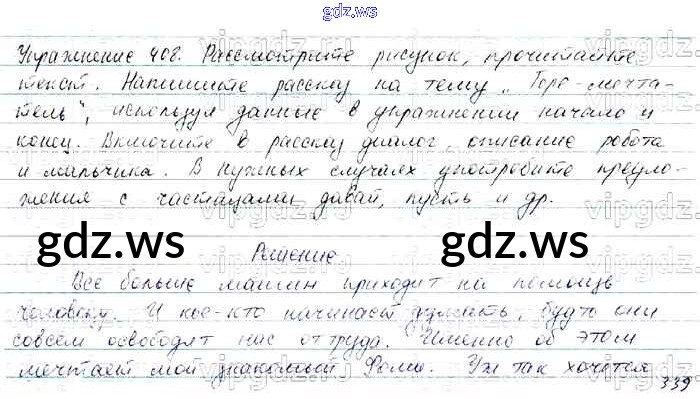 gdz.ws
Упражнение 408. Рассмотрите рисунок, прочитайте
текст. Напишите рассказ на тему „Горе-мечта-
тель", используя данные в упражнении начало и
конец. Включите в рассказ диалог, описание робота
и мальчика. В нужных случаях употребите предло-
жения с частицами давай, пусть и др.
gdz.ws gdz.ws
Решение
Все больше машин приходит на помощь
человеку. И кое-кто начинает думать, будто они
совсем освободят нас от труда. Именно об этом
мечтает мой знакомый Фома. Уж так хочется
339